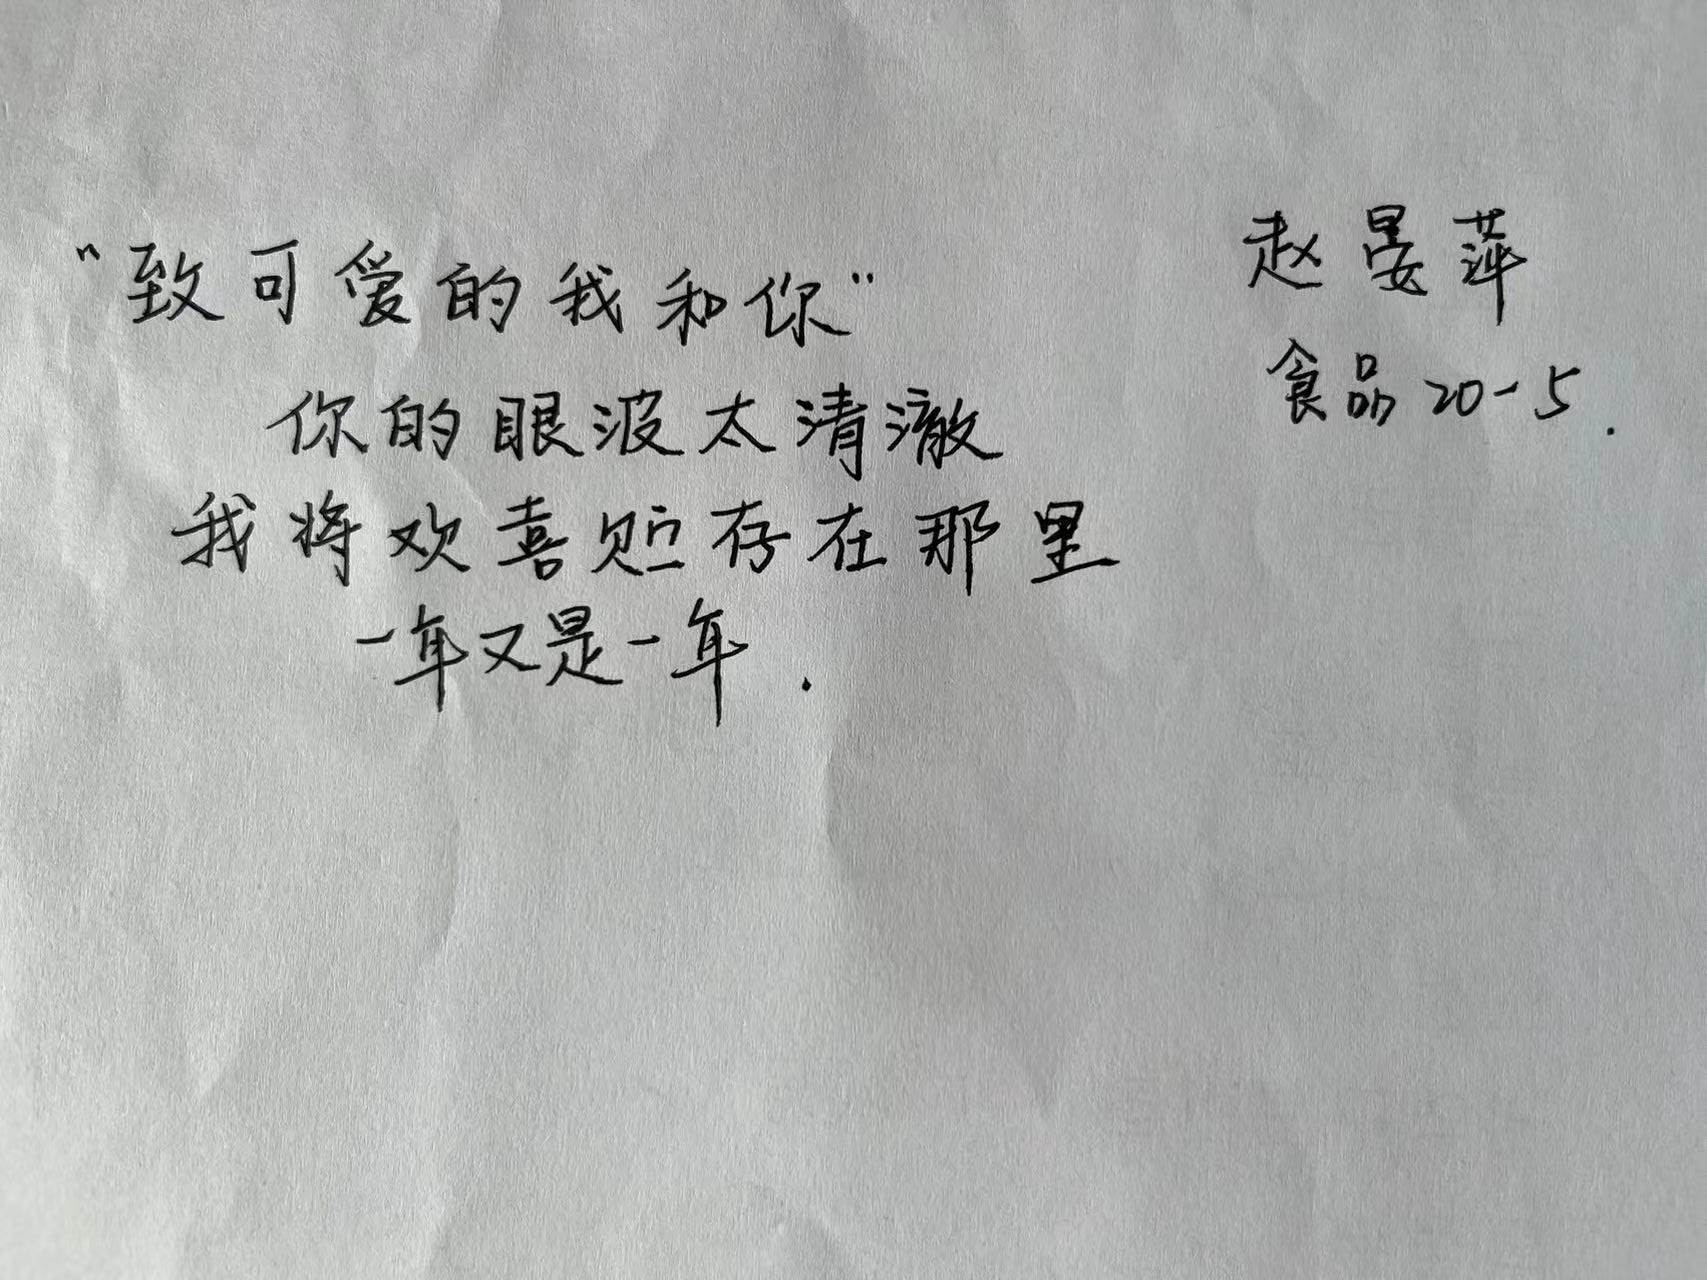 "致可爱的我和你"
你的眼波太清澈
我将欢喜贮存在那里
一年又是一年.
赵晏萍
食品20-5.